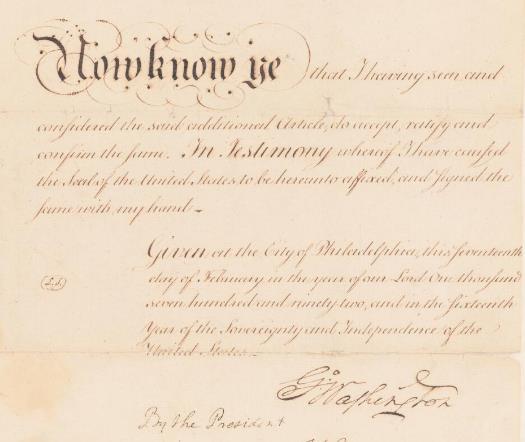 Now know ye that I having seen and
considered the said additional Article, do accept, ratify and
confirm the same. In Testimony whereof I have caused
the Seal of the United States to be hereunto affixed, and signed the
same with my hand _
Given at the City of Philadelphia, this seventeenth
day of February in the year of our Lord One thousand
(L.S.) seven hundred and ninety two, and in the sixteenth
Year of the Sovereignty and Independence of the
United States _
Go Washington
By the President